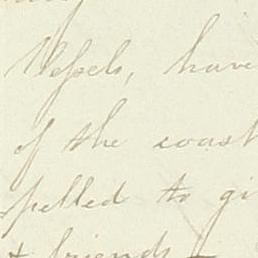 Vessels, have
of the coast
pelled to gi
& friends